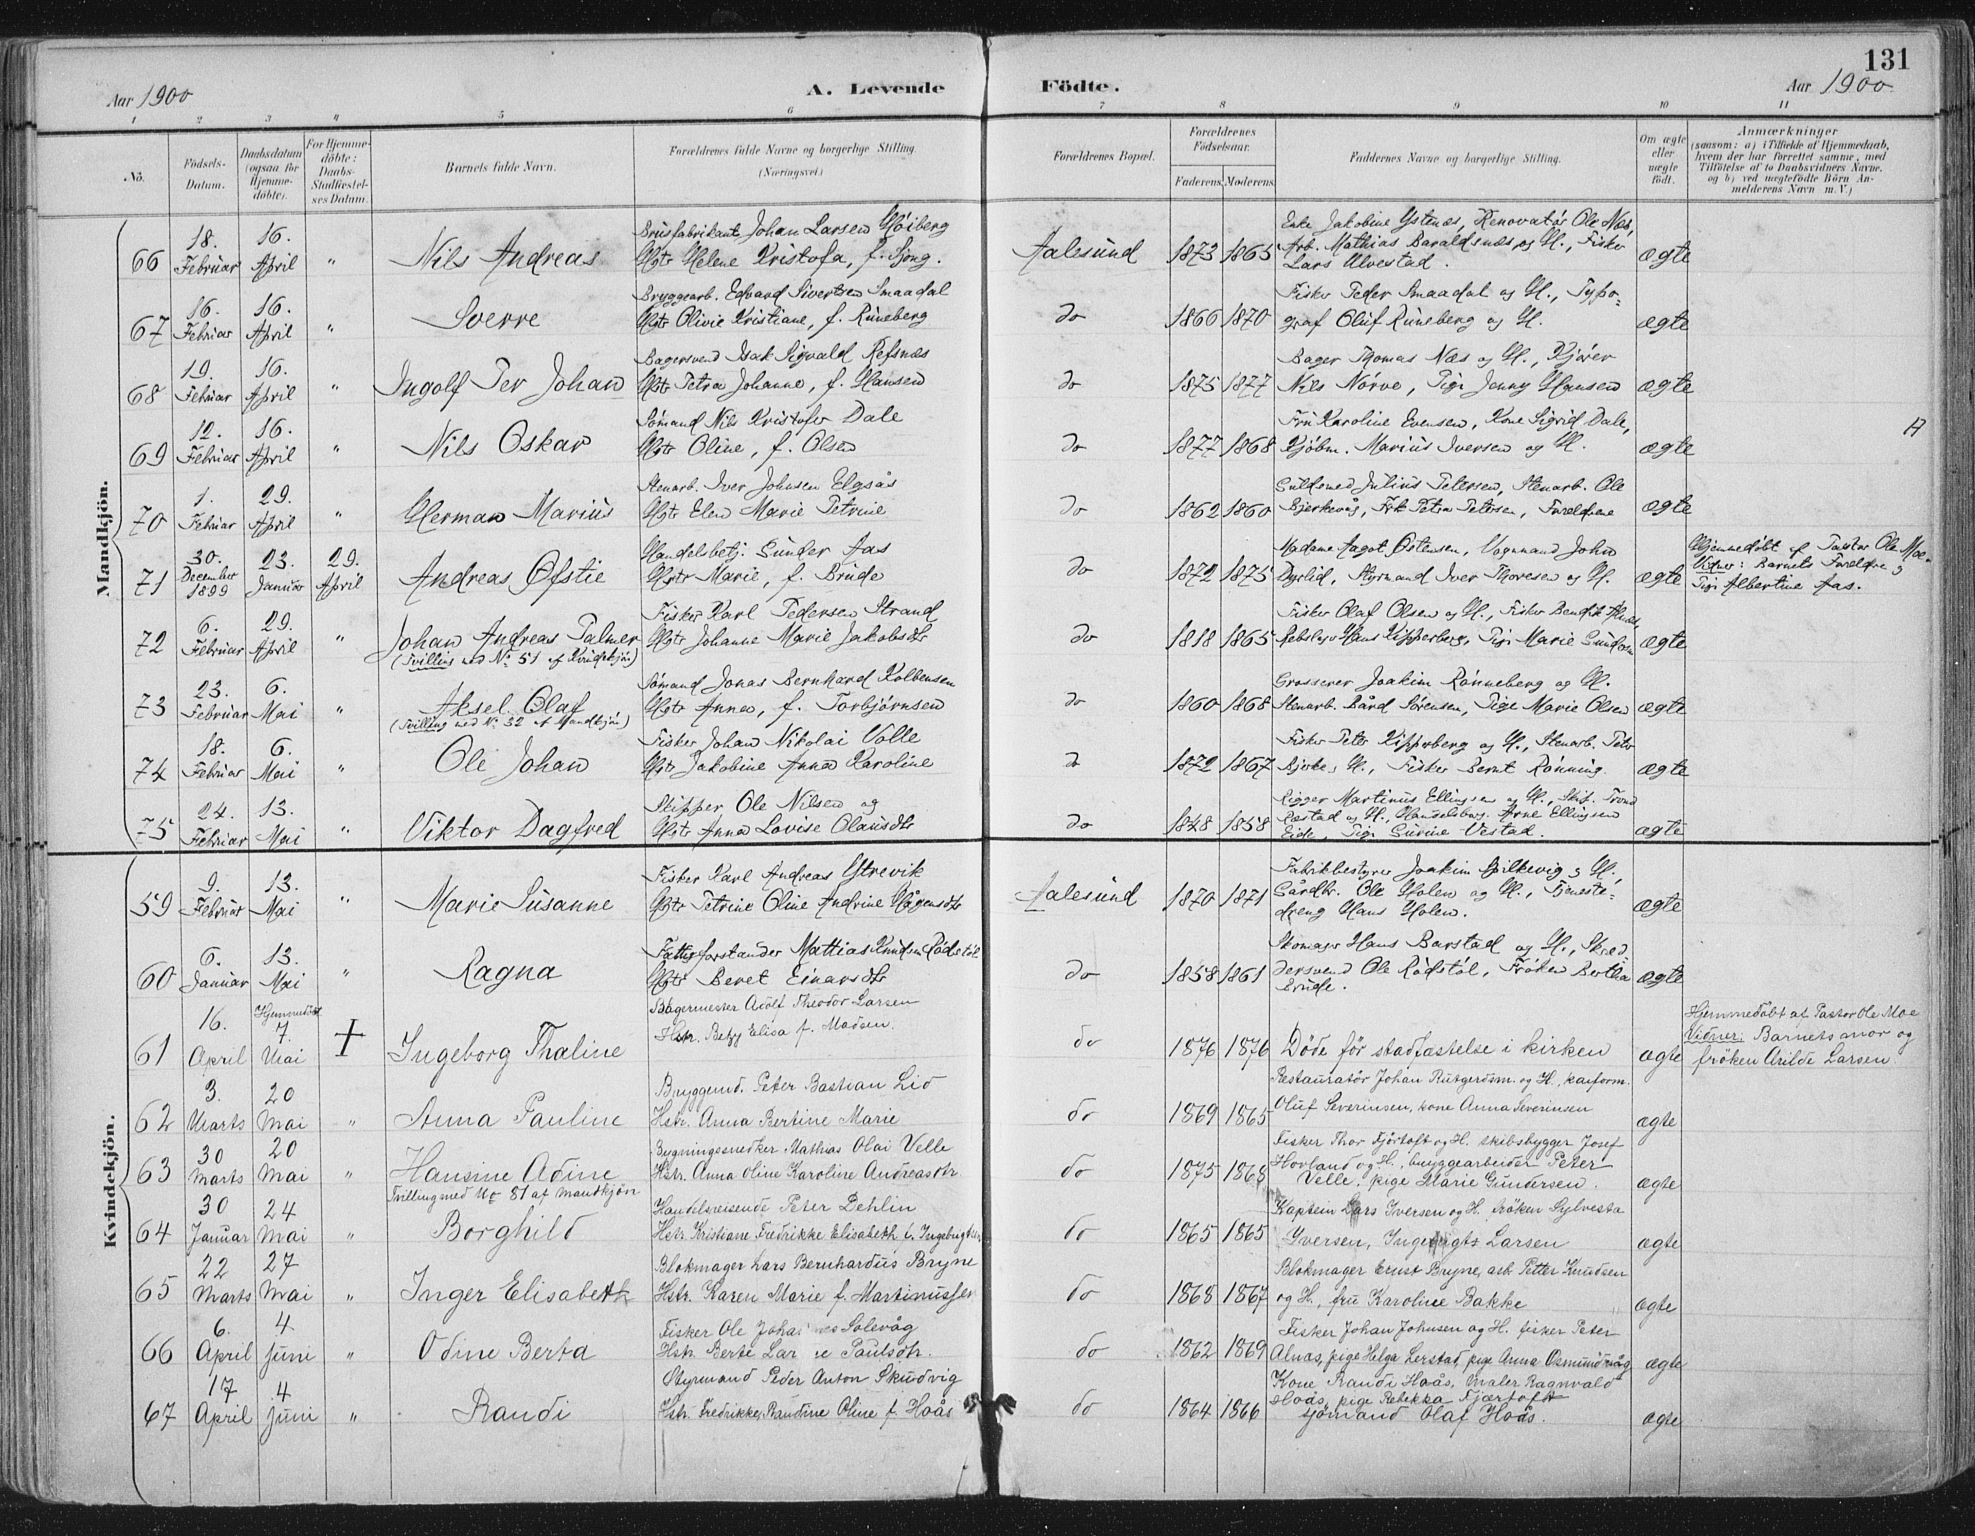 131
Aar 1900 A. Levende Födte. Aar 1900
1 2 3 4 5 6 7 8 9 10 11
No. Födsels-Datum. Daabsdatum (ogsaa for Hjemmedöbte). For Hjemmedöbte: Daabs-Stadfæstelses Datum. Barnets fulde Navn. Forældrenes fulde Navne og borgerlige Stilling. (Næringsvei.) Forældrenes Bopæl. Forældrenes Födselsaar. Faderens. Moderens. Faddernes Navne og borgerlige Stilling. Om ægte eller uægte födt. Anmærkninger
(saasom: a) i Tilfælde af Hjemmedaab, hvem der har forrettet samme, med Tilföielse af to Daabsvidners Navne. og b) ved uægtefödte Börn Anmelderens Navn m. V.)
Mandkjön.
Brusfabrikant Johan Larsen Höiberg
66 18. Februar 16. April " Nils Andreas Hstr Helene Kristofa, f. Sjong. Aalesund 1873 1865 Enke Jakobine Ystenæs, Renovatör Ole Næs,
Arb. Mathias Baraldsnæs og H., Fisker
Lars Alvestad. ægte
Bryggearb. Edvard Sivertsen Smaadal
67 16. Februar 16. April " Sverre Hstr Olivie Kristiane, f. Runeberg do 1866 1870 Fisker Peder Smaadal og H., Typo-
graf Oluf Runeberg og H. ægte
Bagersvend Isak Sigvald Refsnæs
68 19. Februar 16. April " Ingolf Per Johan Hstr Petra Johanne, f. Hansen do 1875 1877 Bager Thomas Næs og H., Kjörer
Nils Nörve, Pige Jenny Hansen ægte
Sömand Nils Kristofer Dale
69 12. Februar 16. April " Nils Oskar Hstr Oline, f. Olsen do 1877 1868 Fru Karoline Evensen, Kone Sigrid Dale,
Kjöbm. Marius Iversen og H. ægte
Stenarb. Iver Johnsen Elgsås
70 1. Februar 29. April " Herman Marius Hstr Elen Marie Petrine do 1862 1860 Guldsmed Julius Petersen, Stenarb. Ole
Bjerkevåg, Frk Petra Petersen, Forældrene ægte
Handelsbetj. Sunder Aas
71 30. December 1899 23. Januar 29. April Andreas Öfstie Hstr Marie, f. Brude do 1872 1875 Madame Aagot Östensen, Vognmand John
Dyrlid, Styrmand Iver Thoresen og H. ægte Hjemmedöbt af Pastor Ole Moe.
Vidner: Barnets Forældre og
Pige Albertine Aas.
Fisker Karl Pedersen Strand
72 6. Februar 29. April " Johan Andreas Palmer Hstr Johanne Marie Jakobsdtr do 1818 1865 Fisker Olaf Olsen og H., Fisker Bendik Alnæs,
Rebslager Hans Kipperberg, Pige Marie ægte
(Tvilling med No 51 af Kvindekjön)
Sömand Jonas Bernhard Kolbensen
73 23. Februar 6. Mai " Aksel Olaf Hstr Anna, f. Torbjörnsen do 1860 1868 Grosserer Joakim Rönneberg og H.
Stenarb. Bård Sörensen, Pige Marie Olsen ægte
(Tvilling med No 52 af Mandkjön)
Fisker Johan Nikolai Volle
74 18. Februar 6. Mai " Ole Johan Hstr Jakobine Anna Karoline do 1872 1867 Fisker Peter Kipperberg og H., Stenarb. Peter
Bjerke, H., Fisker Bernt Rönning ægte
Skipper Ole Nilsen og
75 24. Februar 13. Mai " Viktor Dagfred Hstr Anna Lovise Olausdtr do 1848 1858 Rigger Martinus Ellingsen og H., Skip. Trond
Ræstad og H., Handelsborg. Arne Ellingsen
Eide, Pige Gurine Vestad. ægte
Kvindekjön.
Fisker Karl Andreas Ytrevik
59 9. Februar 13. Mai " Marie Susanne Hstr Petrine Oline Andrine Hågensdtr Aalesund 1870 1871 Fabrikbestyrer Joakim og H.
Gårdbr. Ole Holen og H., Tjeneste-
dreng Hans Holen. ægte
Fattigforstander Mattias Knudsen Rödstöl
60 6. Januar 13. Mai " Ragna Hstr Beret Einarsdtr do 1858 1861 Skomager Hans Barstad og H., Skræd-
dersvend Ole Rödstöl, Fröken Bertha
Brude. ægte
Bagermester Adolf Theodor Larsen
61 16. April Hjemmedöbt 7. Mai + Ingeborg Thaline Hstr. Betzy Elisa f. Madsen. do 1876 1876 Döde för stadfæstelse i kirken ægte Hjemmedöbt af Pastor Ole Moe
Vidner: Barnets mor og
fröken Arilde Larsen
Bryggemd. Peter Bastian Lid
62 3. Marts 20 Mai " Anna Pauline Hstr. Anna Bertine Marie do 1869 1865 Restauratör Johan Rutgersm. og H., kanform.
Oluf Severinsen, kone Anna Severinsen ægte
Bygningssnedker Mathias Olai Velle
63 30 Marts 20 Mai " Hansine Adine Hstr. Anna Oline Karoline Andreasdtr do 1875 1868 Fisker Thor Fjörtoft og H. skibsbygger Josef
Hovland og H., bryggearbeider Peter
Velle, pige Marie Gundersen. ægte
Tvilling med No 81 af mandkjön
Handelsreisende Peter Dehlin
64 30 Januar 24 Mai " Borghild Hstr. Kristiane Fredrikke Elisabeth f. Ingebrigtsen do 1865 1865 Kaptein Lars Iversen og H. fröken Sylvesta
Yversen, Ingebrigt Larsen ægte
Blokmager Lars Bernhardus Bryne
65 22 Marts 27 Mai " Inger Elisabeth Hstr. Karen Marie f. Martinussen do 1868 1867 Blokmager Ernst Bryne, arb. Petter Knudsen
og H., fru Karoline Bakke ægte
Fisker Ole Solevåg
66 6. April 4 Juni " Odine Berta Hstr. Berte Paulsdtr. do 1862 1869 Fisker Johan Johnsen og H. fisker Peter
Alnæs, pige Helga Lerstad, pige Anna Osmundvåg ægte
Styrmand Peder Anton Skudvig
67 17 April 4 Juni " Randi Hstr. Fredrikke Raudine Oline f. Hoås do 1864 1866 Kone Randi Hoås, maler Ragnvald
Hoås, pige Rebekka Fjærtoft
sjömand Olaf Hoås. ægte